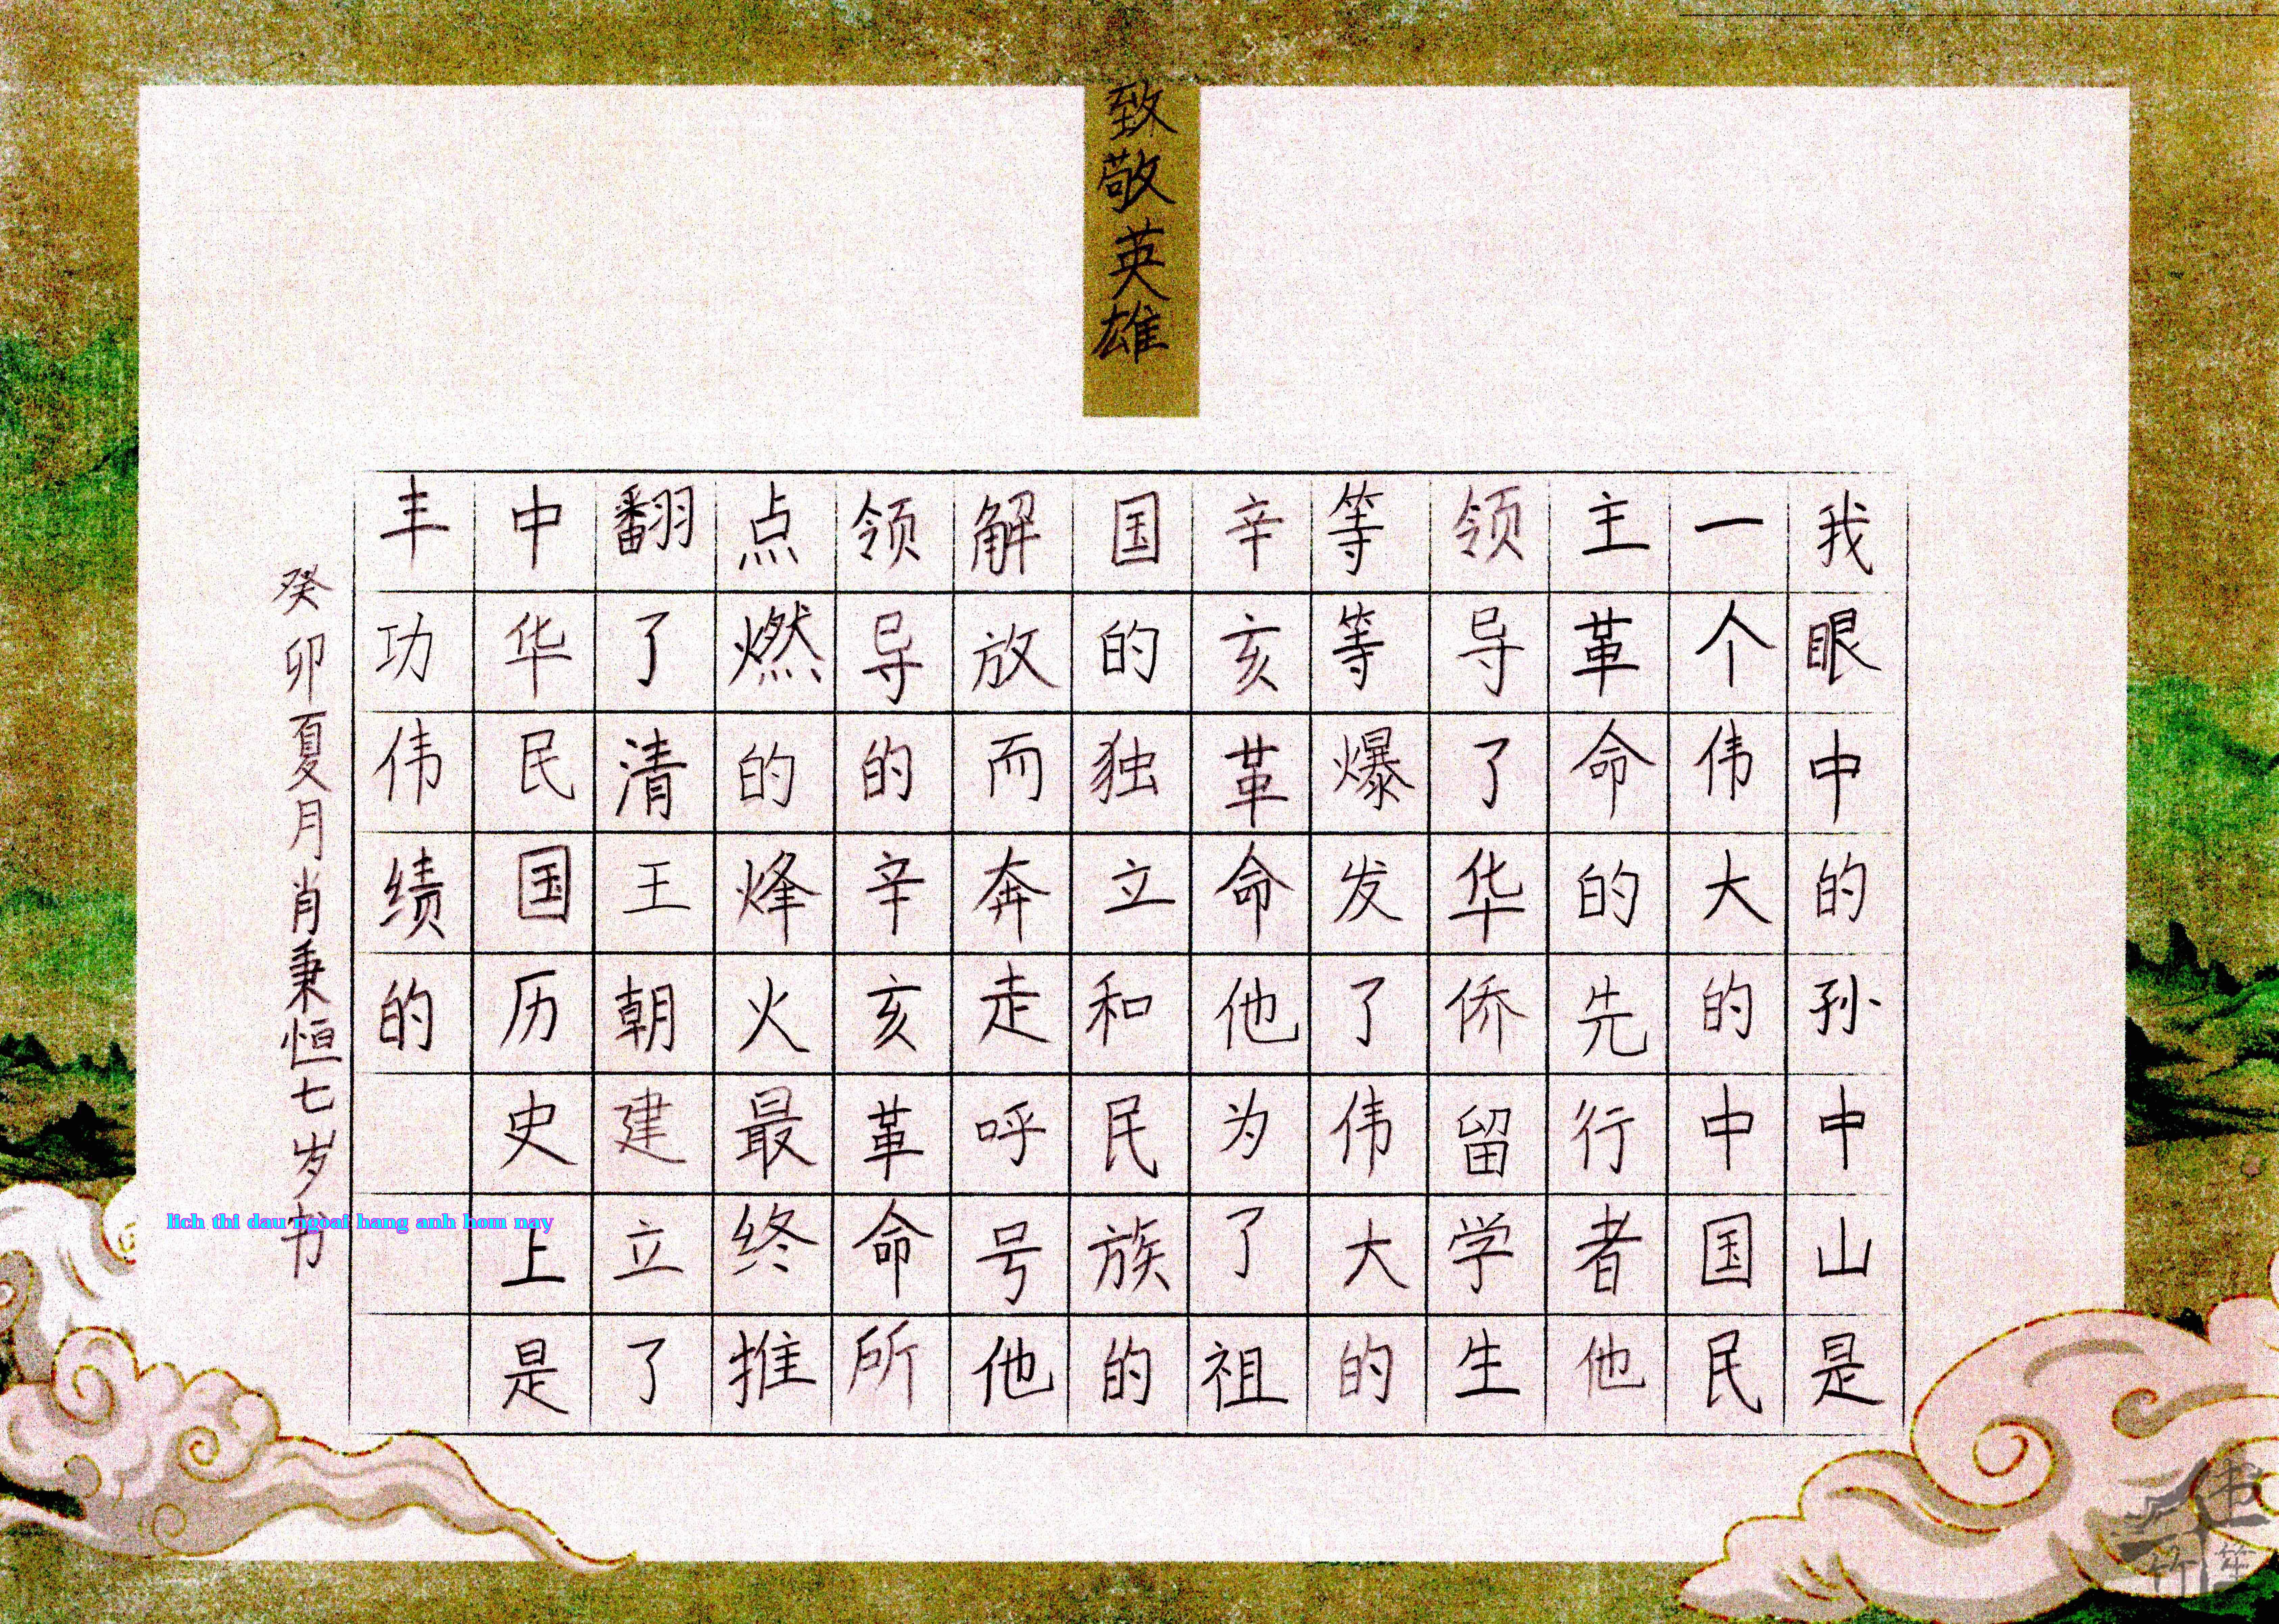 致敬英雄
我眼中的孙中山是
一个伟大的中国民
主革命的先行者他
领导了华侨留学生
等等爆发了伟大的
辛亥革命他为了祖
国的独立和民族的
解放而奔走呼号他
领导的辛亥革命所
点燃的烽火最终推
翻了清王朝建立了
中华民国历史上是
丰功伟绩的
癸卯夏月肖秉恒七岁书
lich thi dau ngoai hang anh hom nay